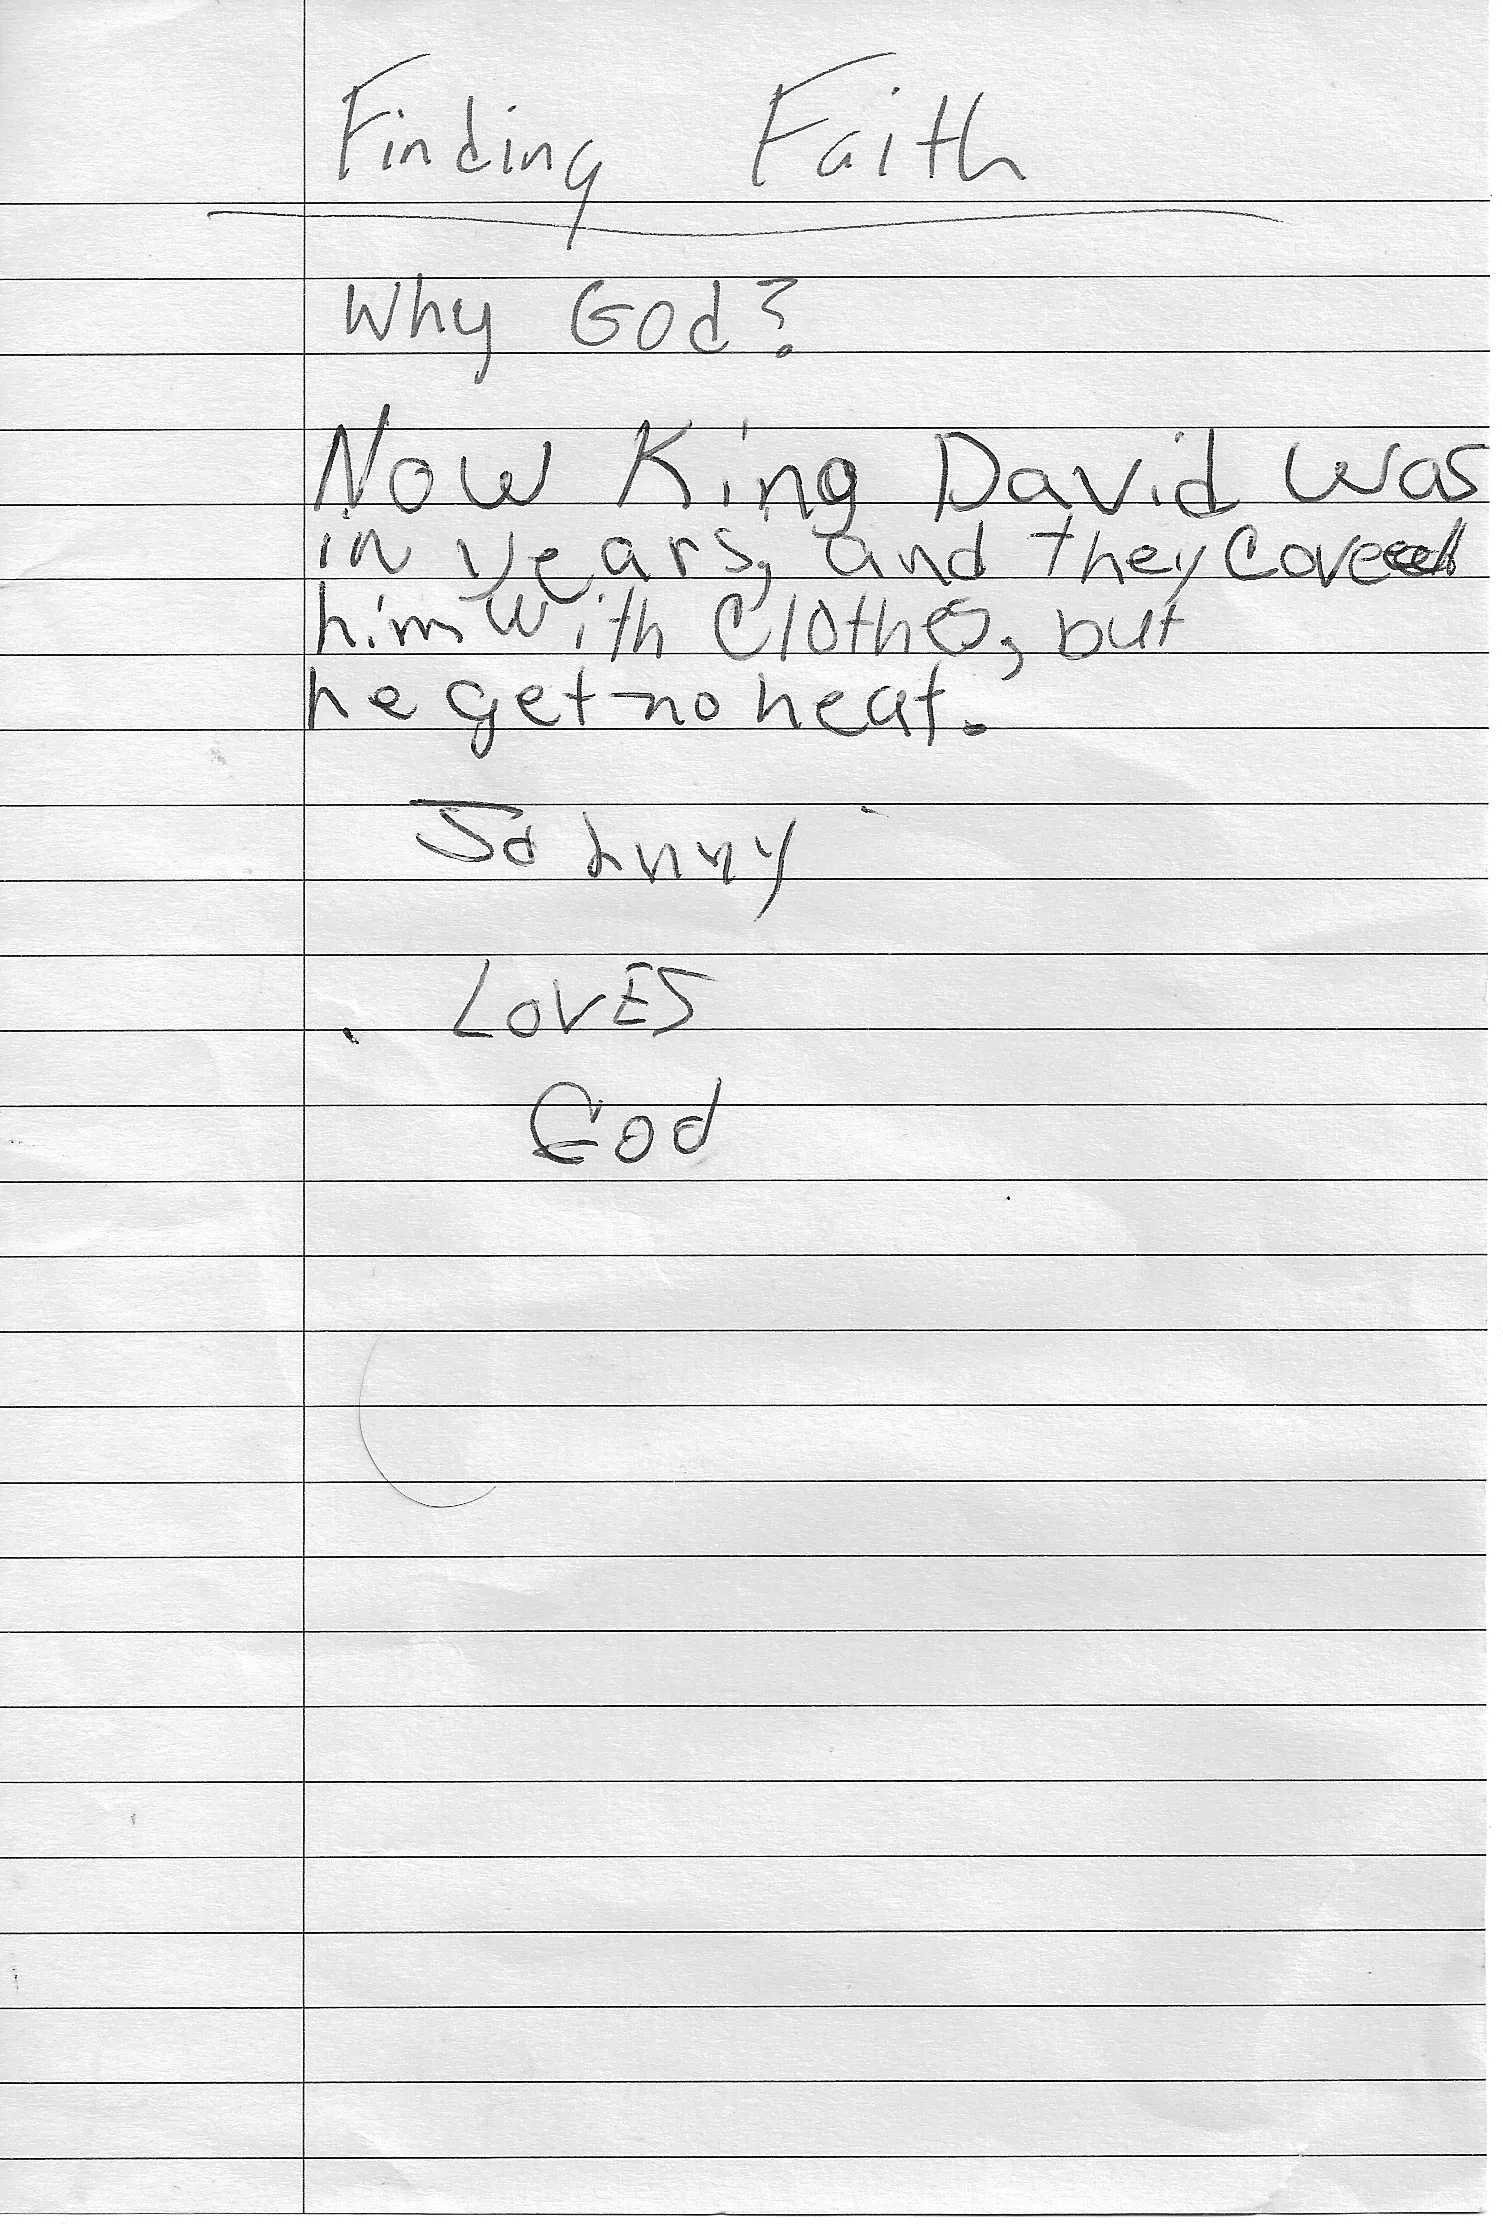 Finding Faith
Why God?
Now King David was
in years, and they coveed
him with clothes, but
he get no heat.
Johnny
LOVES
God